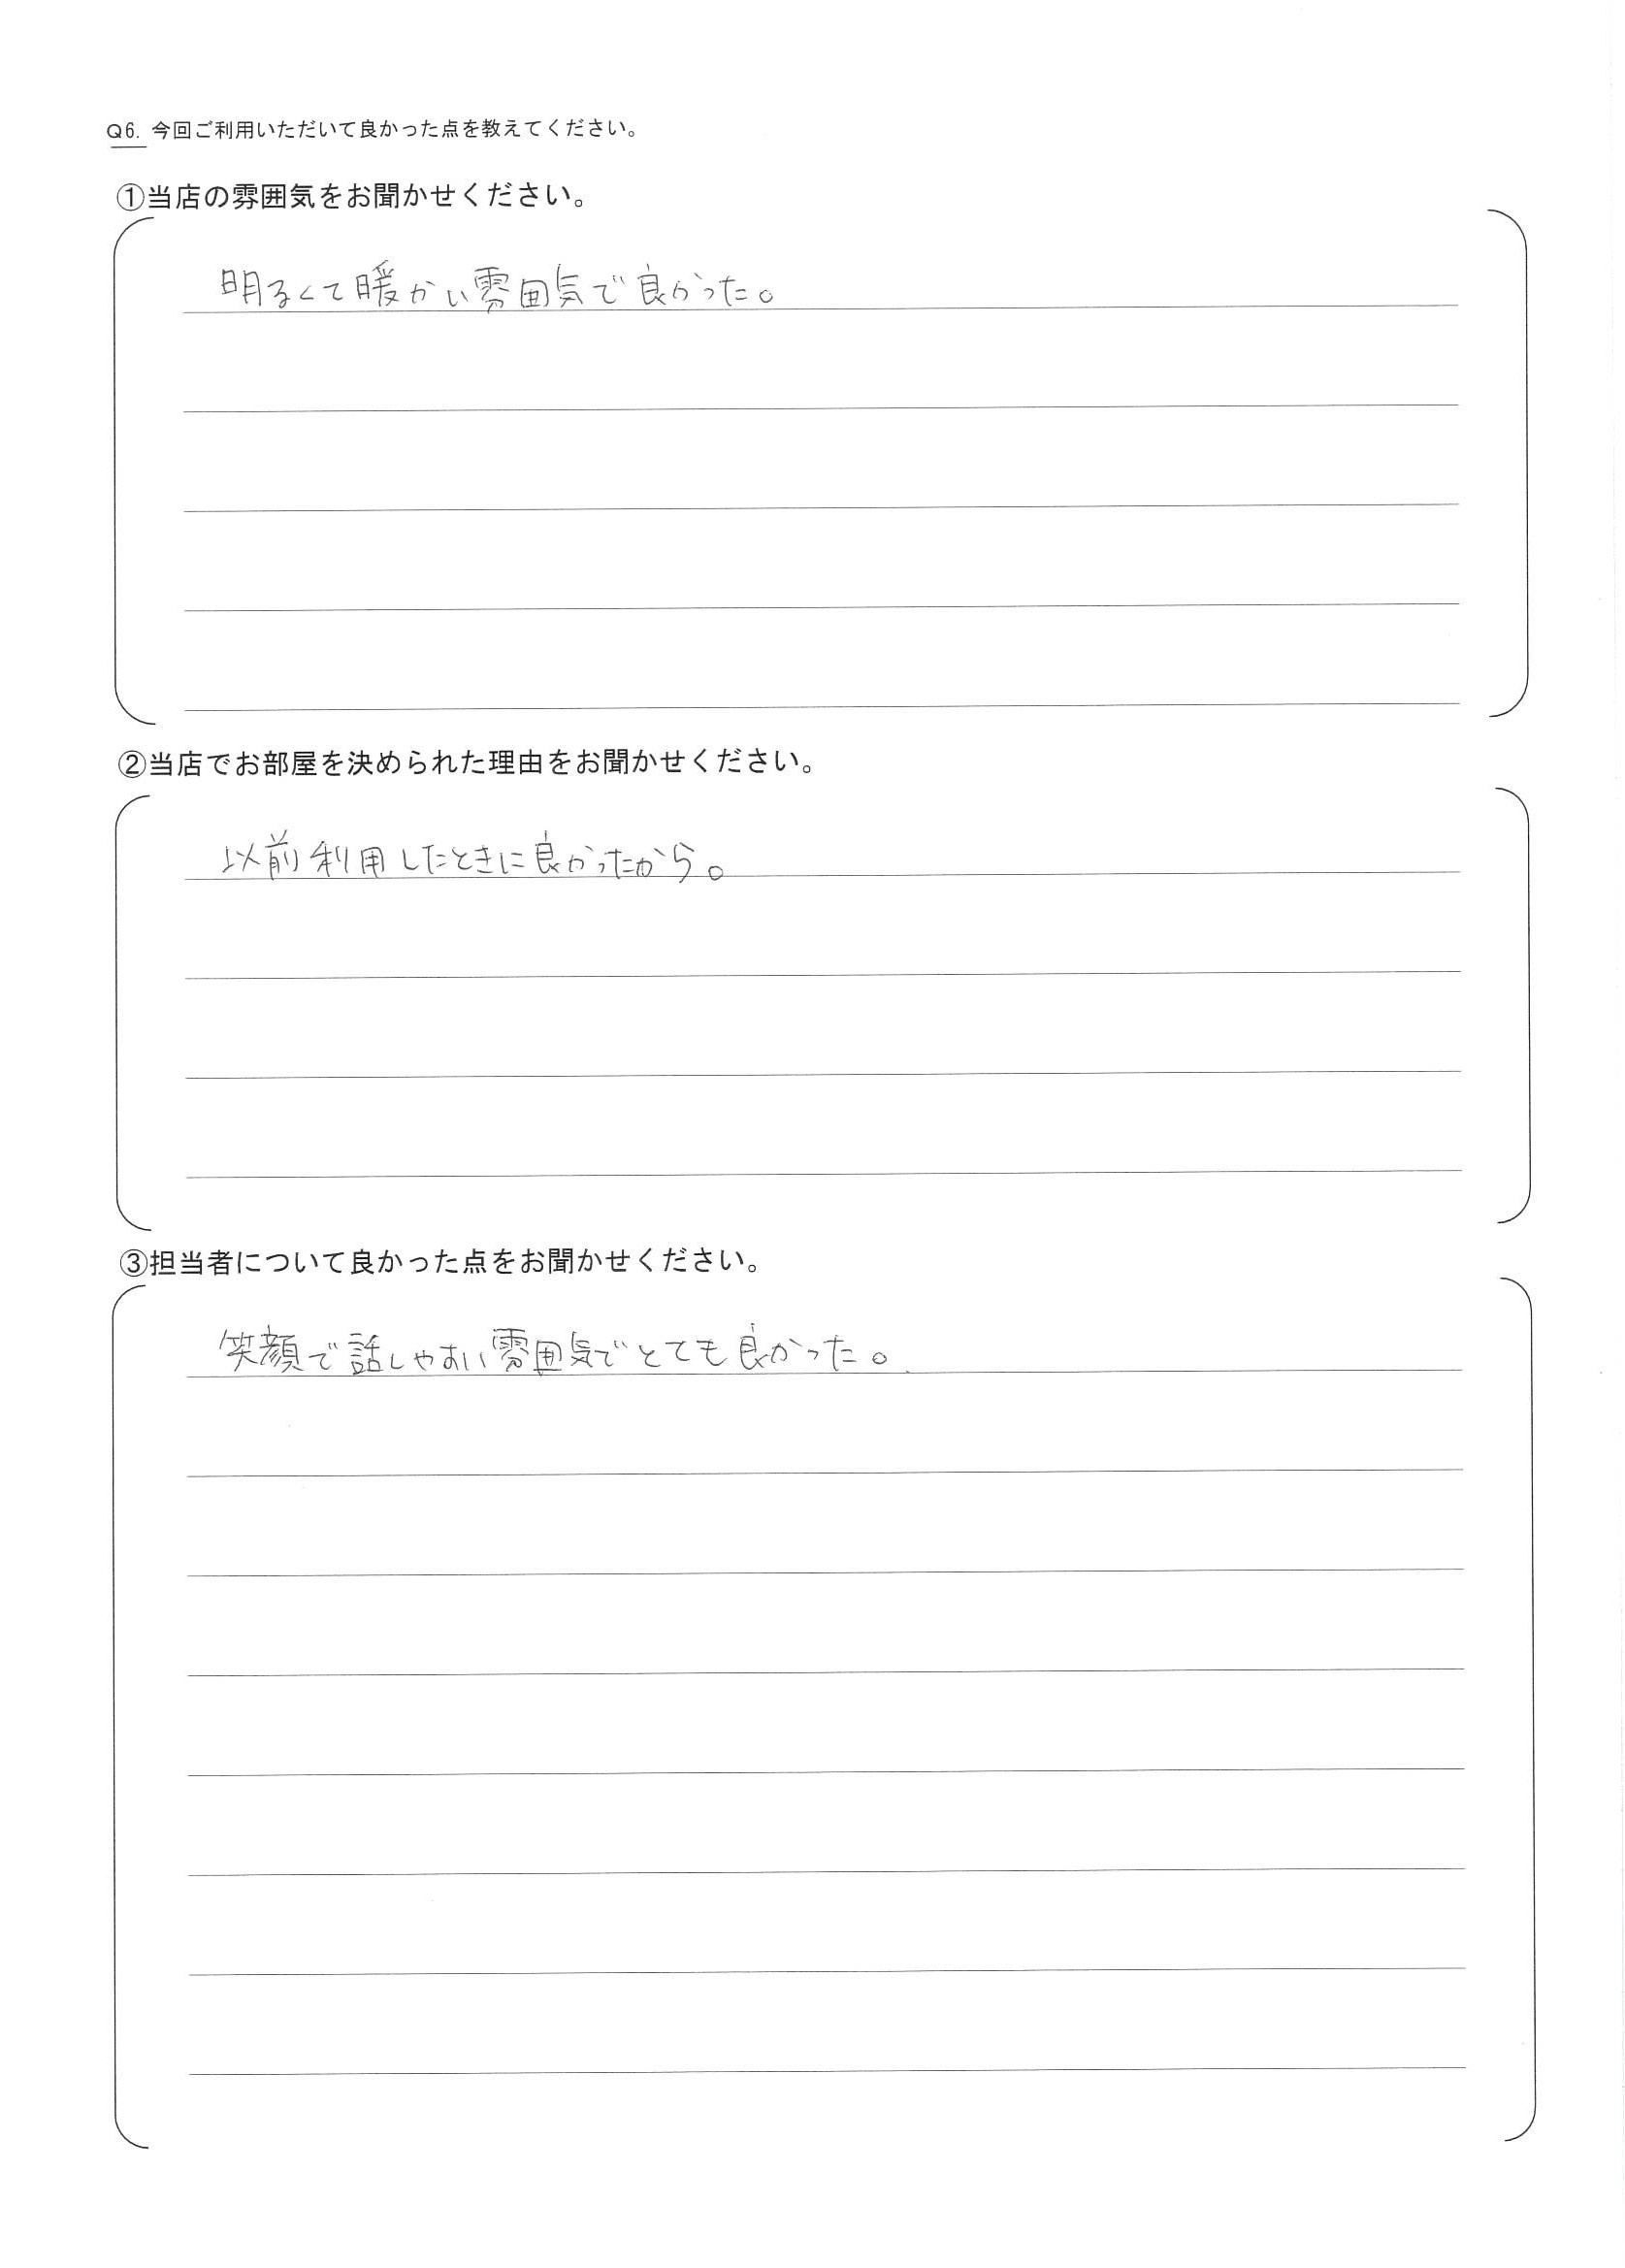 Q6. 今回ご利用いただいて良かった点を教えてください。
①当店の雰囲気をお聞かせください。
明るくて暖かい雰囲気で良かった。
②当店でお部屋を決められた理由をお聞かせください。
以前利用したときに良かったから。
③担当者について良かった点をお聞かせください。
笑顔で話しやすい雰囲気でとても良かった。